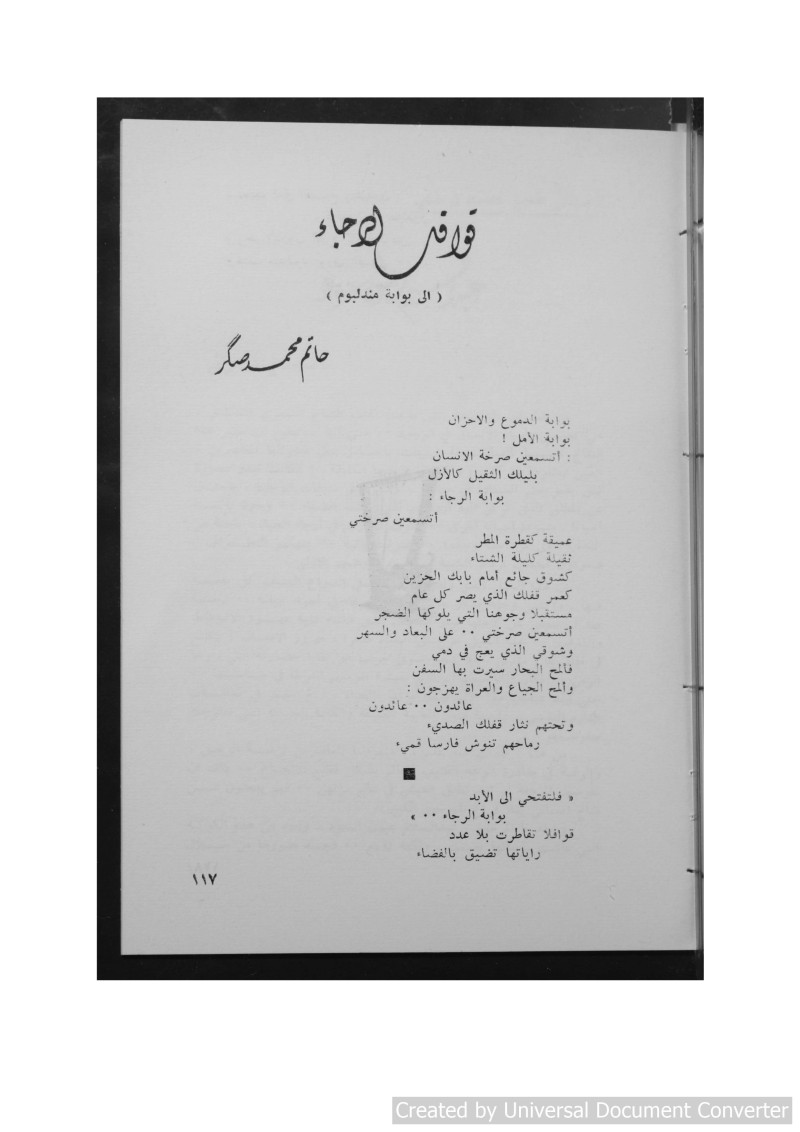 قوافل الرجاء
( الى بوابة مندلبوم )
حاتم محمد صگر
بوابة الدموع والاحزان
بوابة الأمل !
: أتسمعين صرخة الانسان
بليلك الثقيل كالأزل
بوابة الرجاء :
أتسمعين صرختي
عميقة كقطرة المطر
ثقيلة كليلة الشتاء
كشوق جائع أمام بابك الحزين
كعمر قفلك الذي يصر كل عام
مستقبلا وجوهنا التي يلوكها الضجر
أتسمعين صرختي ٠٠ على البعاد والسهر
وشوقي الذي يعج في دمي
فالمح البحار سيرت بها السفن
وألمح الجياع والعراة يهزجون :
عائدون ٠٠ عائدون
وتحتهم نثار قفلك الصديء
رماحهم تنوش فارسا قميء
« فلتفتحي الى الأبد
بوابة الرجاء ٠٠ »
قوافلا تقاطرت بلا عدد
راياتها تضيق بالفضاء
١١٧
Created by Universal Document Converter